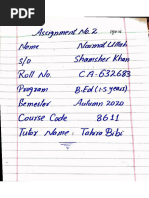 Assignment No. 2
Name Narmal Ullah
S/o Shamsher Khan
Roll No. CA-632683
Program B.Ed (1.5 years)
Semester Autumn 2020
Course Code 8611
Tutor Name: Tahira Bibi